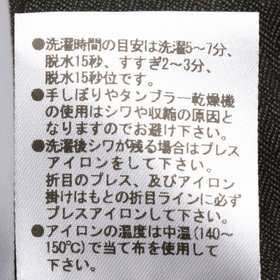 ●洗濯時間の目安は洗濯5〜7分、
脱水15秒、すすぎ2〜3分、
脱水15秒位です。
●手しぼりやタンブラー乾燥機
の使用はシワや収縮の原因と
なりますのでお避け下さい。
●洗濯後シワが残る場合はプレス
アイロンをして下さい。
折目のプレス、及びアイロン
掛けはもとの折目ラインに必ず
プレスアイロンして下さい。
●アイロンの温度は中温(140〜
150℃)で当て布を使用して
下さい。